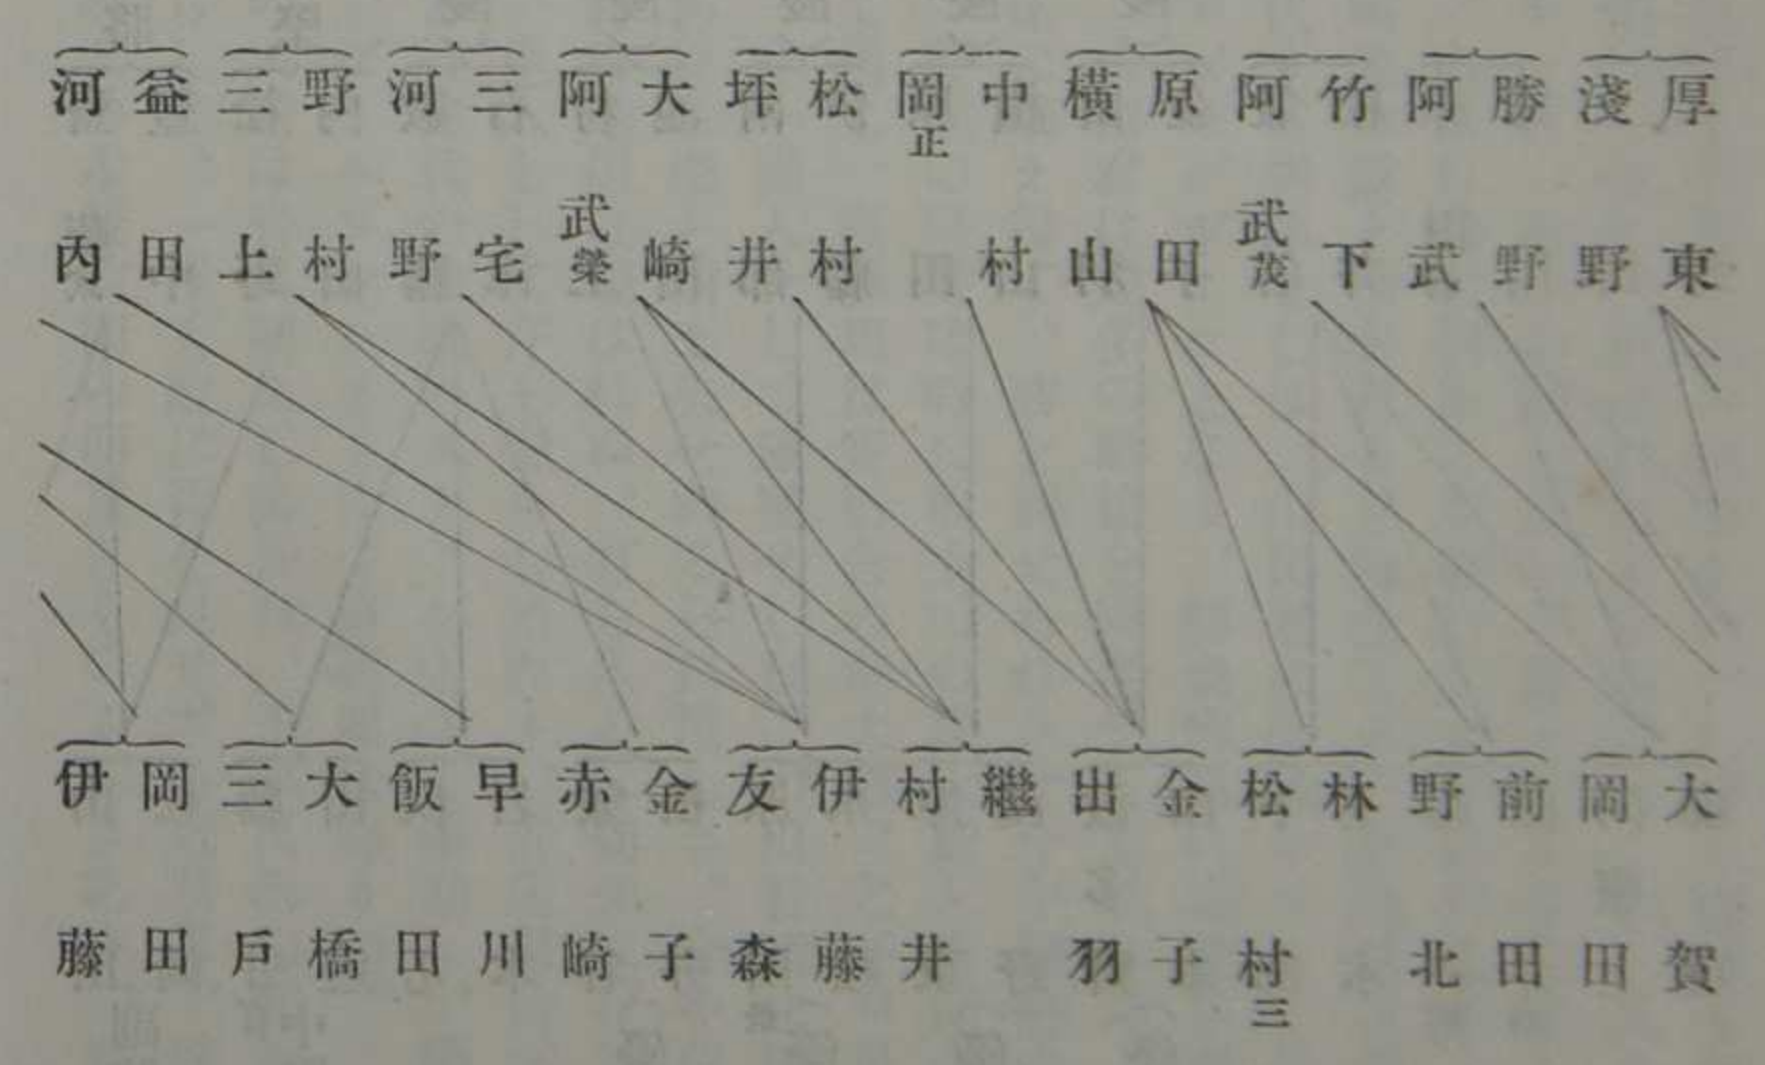 厚東
淺野
勝野
阿武
竹下
阿武茂
原田
橫山
中村
岡正
松村
坪井
大崎
阿武榮
三宅
河野
野村
三上
益田
河內
大賀
岡田
前田
野北
林
松村三
金子
出羽
繼
村井
伊藤
友森
金子
赤崎
早川
飯田
大橋
三戶
岡田
伊藤